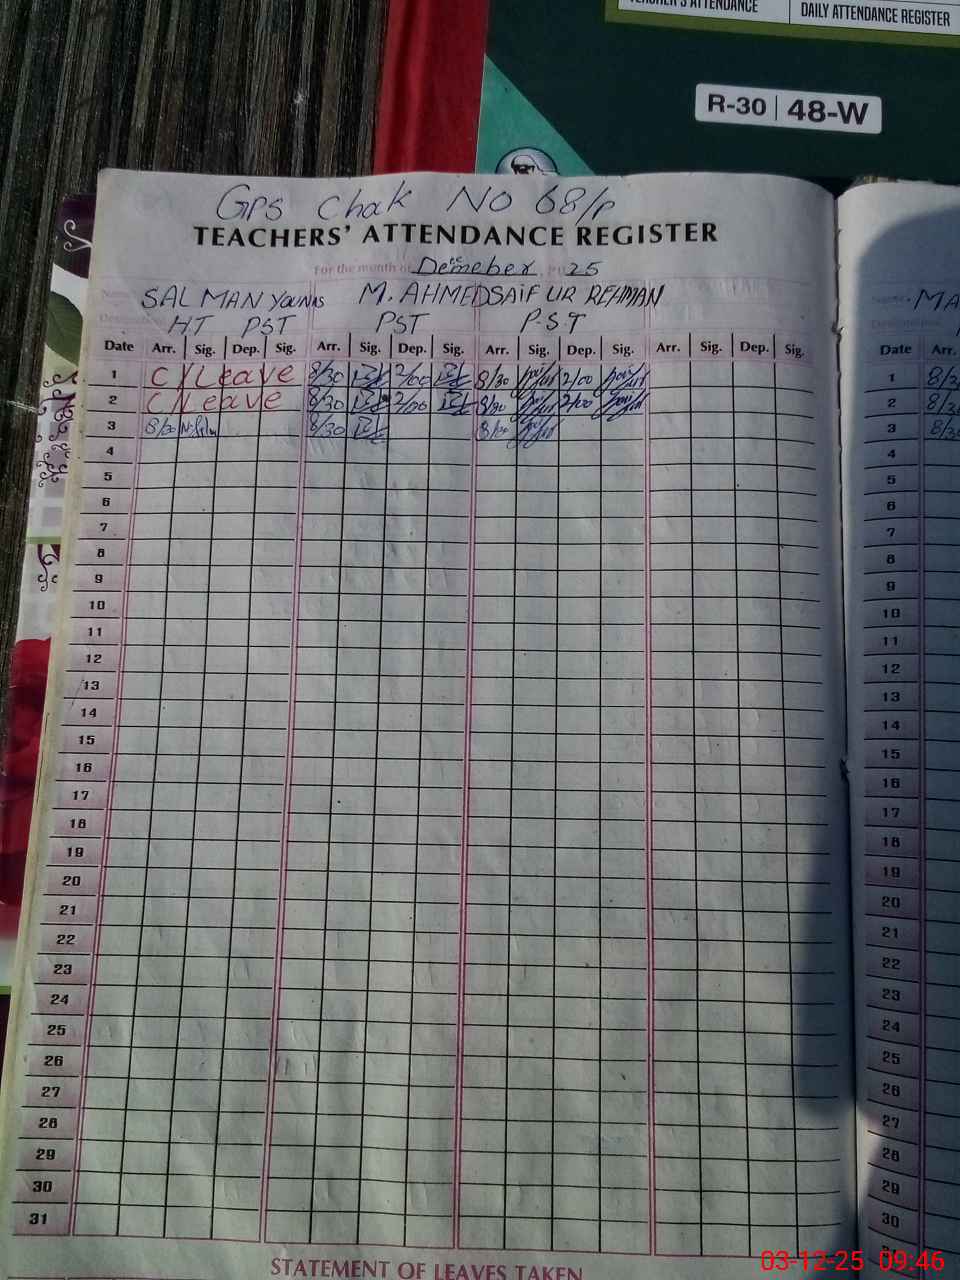 TEACHER'S ATTENDANCE DAILY ATTENDANCE REGISTER
R-30 48-W
GPS Chak NO 68/P
TEACHERS' ATTENDANCE REGISTER
For the month of Demeber 25
SALMAN YOUNAS M. AHMED SAIF UR REHMAN
HT PST PST P.S.T
Date Arr. Sig. Dep. Sig. Arr. Sig. Dep. Sig. Arr. Sig. Dep. Sig. Arr. Sig. Dep. Sig.
1 C/Leave 8/30 2/00 8/30 2/00
2 C/Leave 8/30 2/00 8/30 2/00
3 8/30 8/30
4
5
6
7
8
9
10
11
12
13
14
15
16
17
18
19
20
21
22
23
24
25
26
27
28
29
30
31
STATEMENT OF LEAVES TAKEN
MA
Date Arr.
1
2
3
4
5
6
7
8
9
10
11
12
13
14
15
16
17
18
19
20
21
22
23
24
25
26
27
28
29
30
03-12-25 09:46